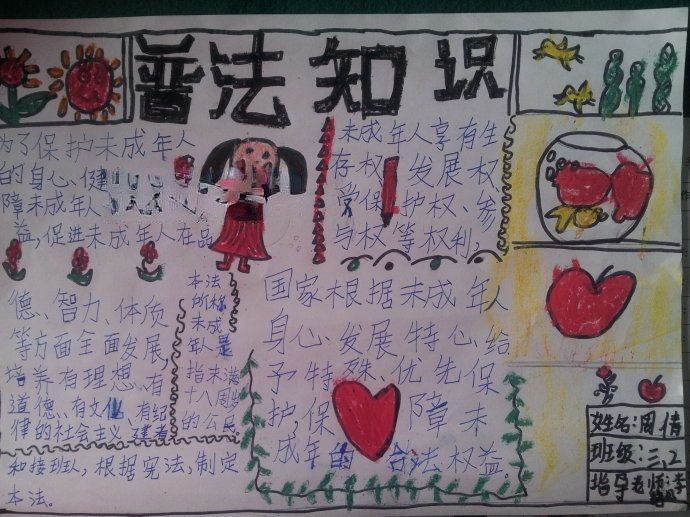 普法知识
为了保护未成年人
的身心、健
障未成年人
益,促进未成年人在品
德、智力、体质
等方面全面发展,
培养有理想、有
道德、有文化、有纪
律的社会主义建者
和接班人,根据宪法,制定
本法。
本法
所称
未成
年人是
指未满
十八周岁
的公民
未成年人享有生
存权、发展权
受保护权、参
与权等权利,
国家根据未成年人
身心、发展特心给
予特殊、优先保
护,保障未
成年的合法权益。
姓名:周倩
班级:三、2
指导老师:李